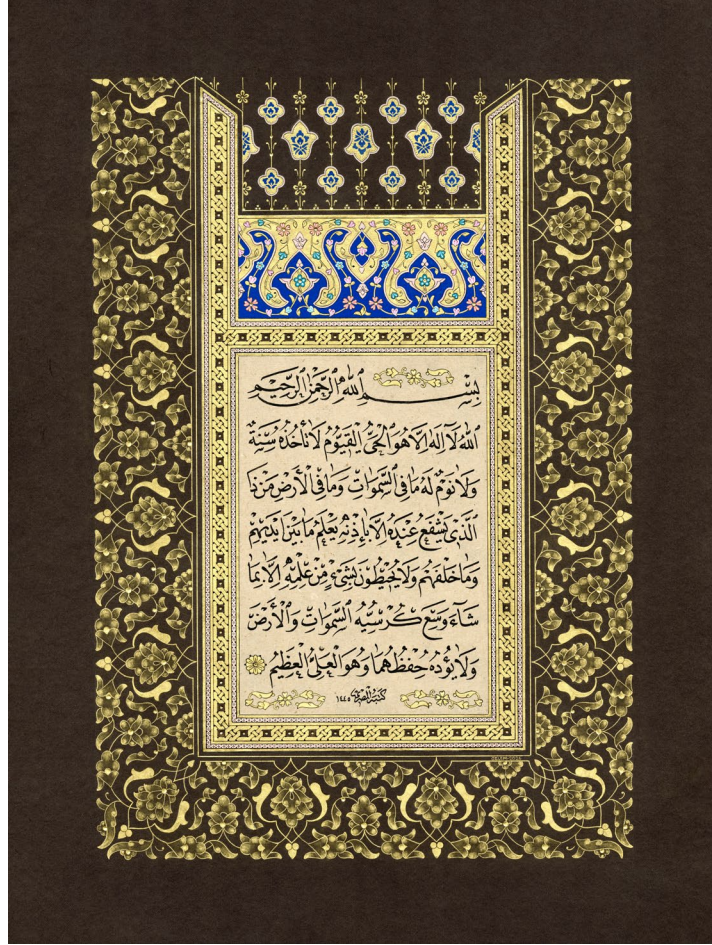 بِسْمِ اللّٰهِ الرَّحْمٰنِ الرَّحٖيمِ
اَللّٰهُ لَآ اِلٰهَ اِلَّا هُوَ الْحَىُّ الْقَيُّومُ لَا تَأْخُذُهُ سِنَةٌ
وَلَا نَوْمٌ لَهُ مَا فِى السَّمٰوَاتِ وَمَا فِى الْاَرْضِ مَنْ ذَا
الَّذٖى يَشْفَعُ عِنْدَهُ اِلَّا بِاِذْنِهٖ يَعْلَمُ مَا بَيْنَ اَيْدٖيهِمْ
وَمَا خَلْفَهُمْ وَلَا يُحٖيطُونَ بِشَىْءٍ مِنْ عِلْمِهٖٓ اِلَّا بِمَا
شَآءَ وَسِعَ كُرْسِيُّهُ السَّمٰوَاتِ وَالْاَرْضَ
وَلَا يَؤُدُهُ حِفْظُهُمَا وَهُوَ الْعَلِىُّ الْعَظٖيمُ
١٤٤٥